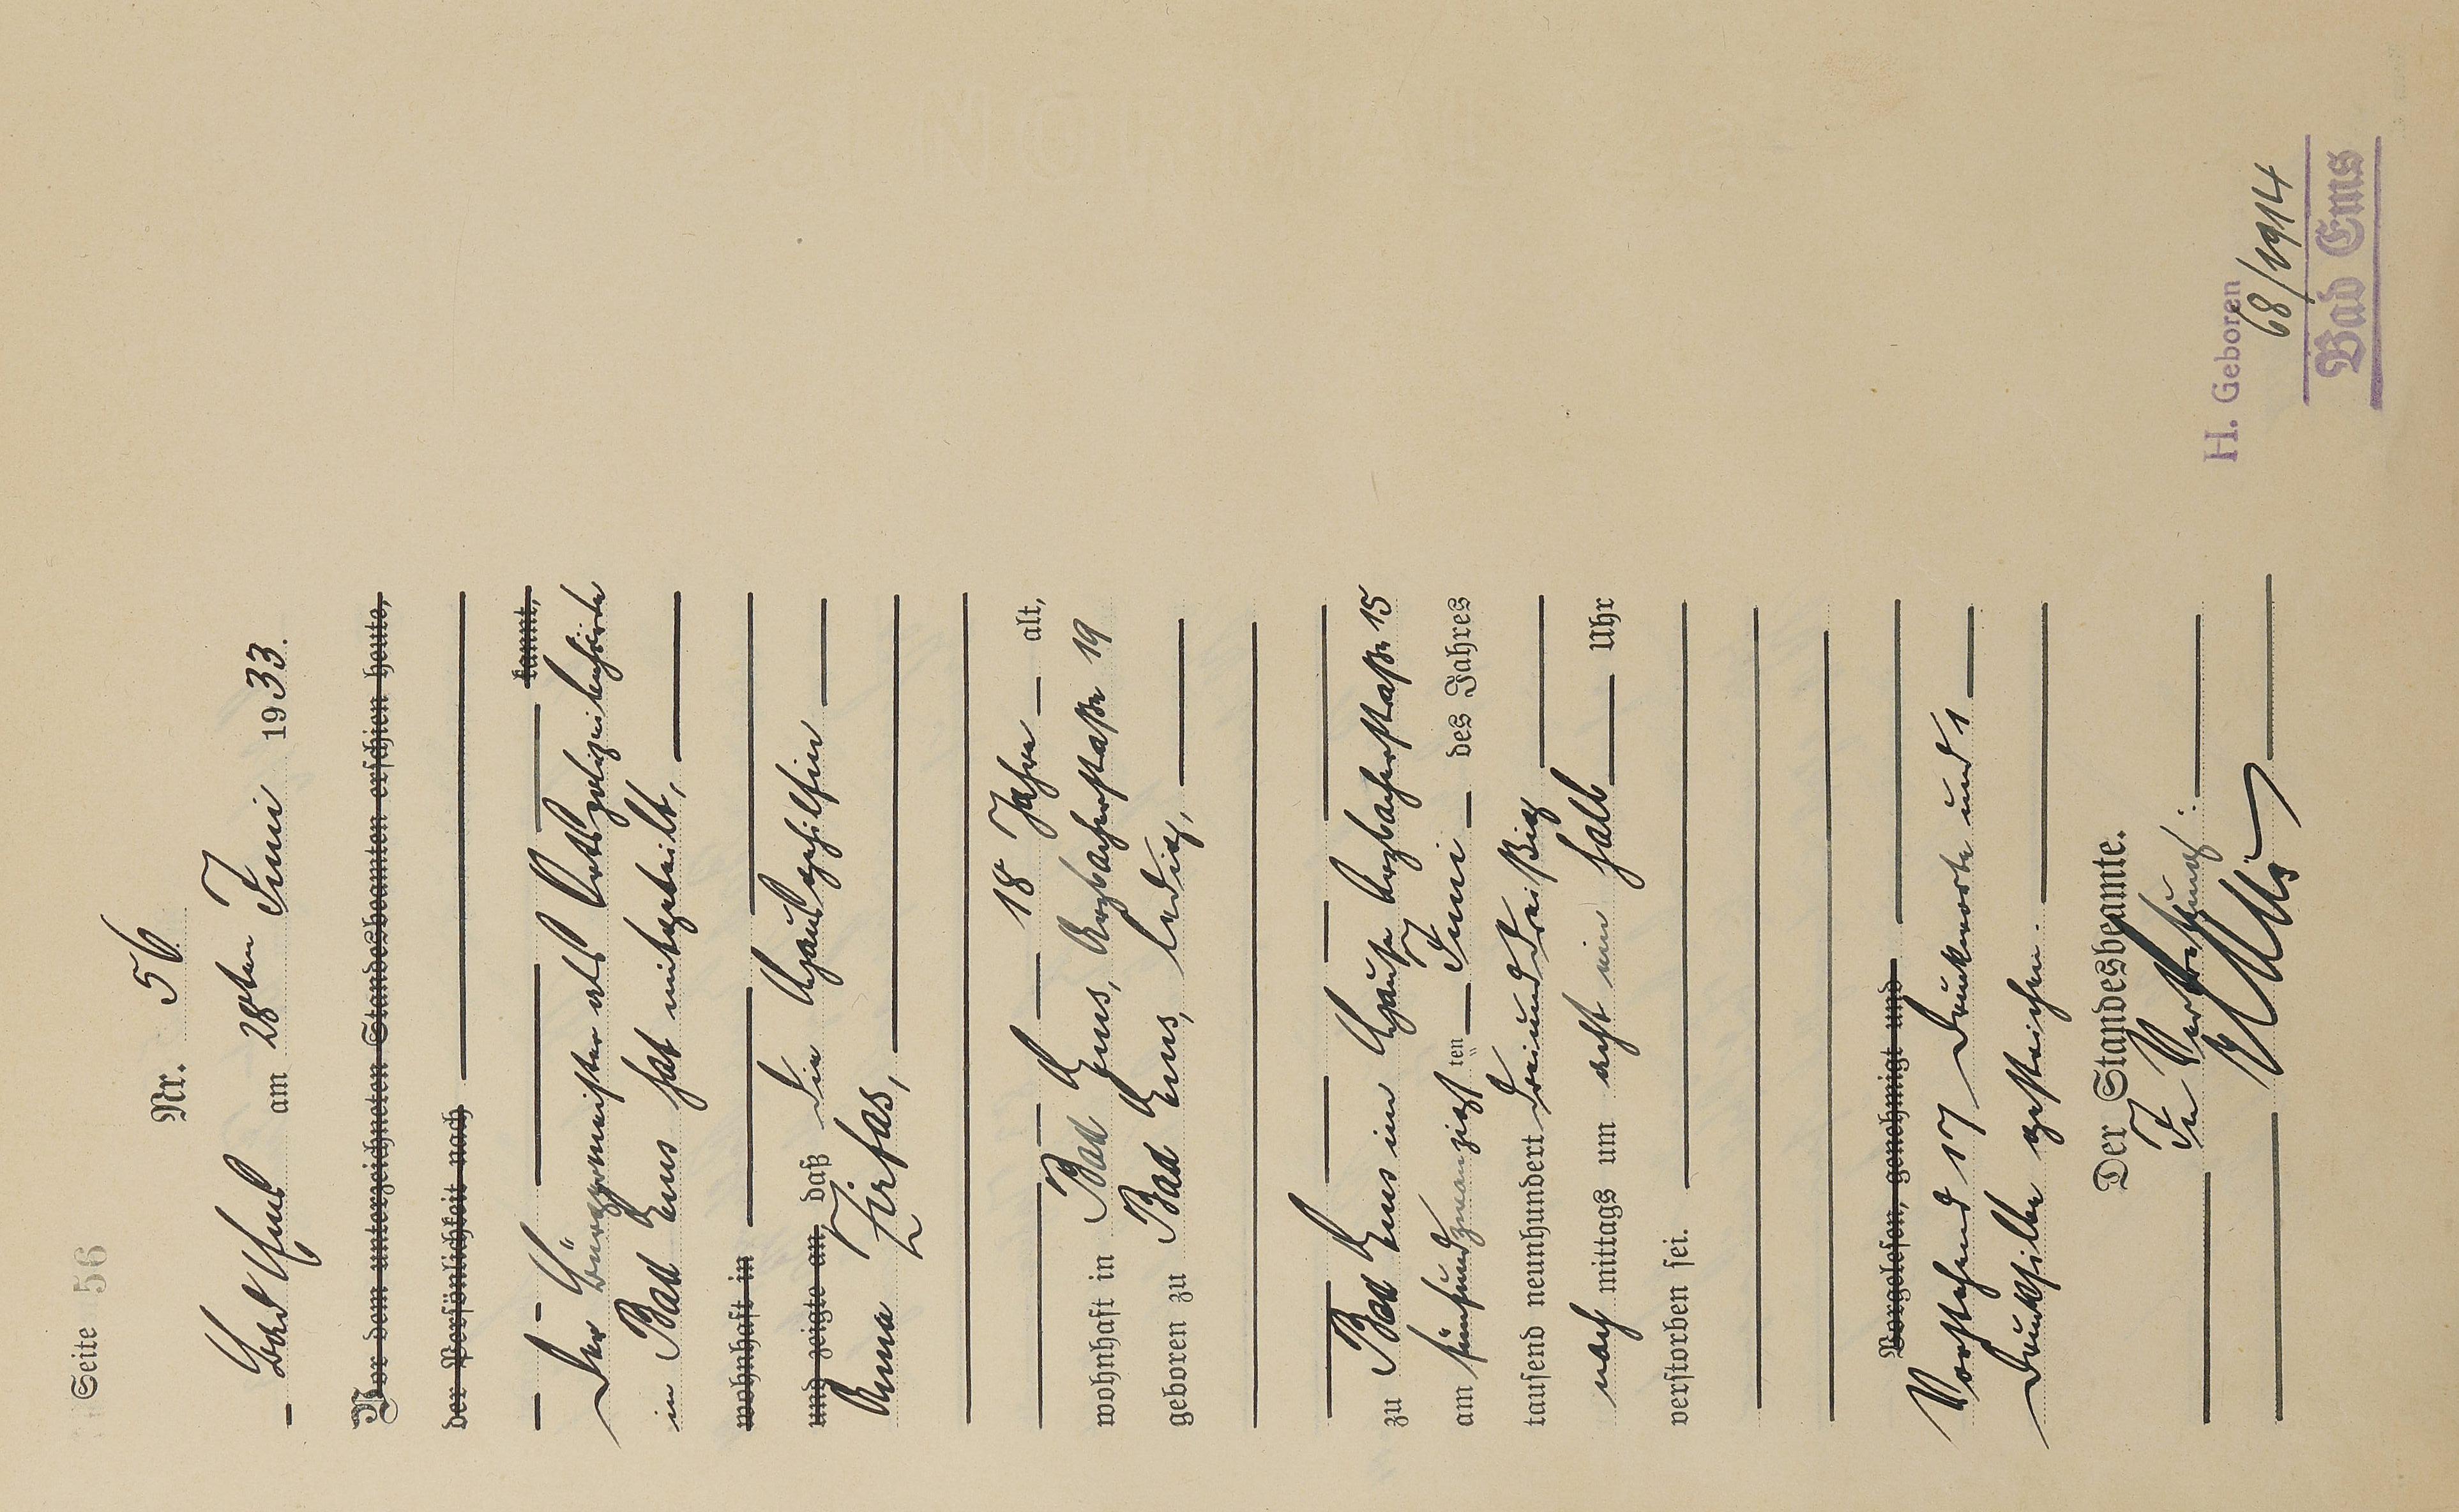 Seite 56
Nr. 56
Bad Ems am 28ten Juni 1933.
Vor dem unterzeichneten Standesbeamten erschien heute,
der Persönlichkeit nach
kannt,
Der Bürgermeister als Ortspolizeibehörde
in Bad Ems hat mitgeteilt,
wohnhaft in
und zeigte an, daß die Hausgehilfin
Anna Zirfas,
18 Jahre alt,
wohnhaft in Bad Ems, Arzbacherstraße 19
geboren zu Bad Ems, ledig,
zu Bad Ems im Hause Arzbacherstraße 15
am fünfundzwanzigsten Juni des Jahres
tausend neunhundert dreiunddreißig
nach mittags um acht ein halb Uhr
verstorben sei.
Vorgelesen, genehmigt und
Vorstehend 17 Druckworte und 1
Drucksilbe gestrichen.
Der Standesbeamte.
In Vertretung:
H. Geboren
68/1914
Bad Ems